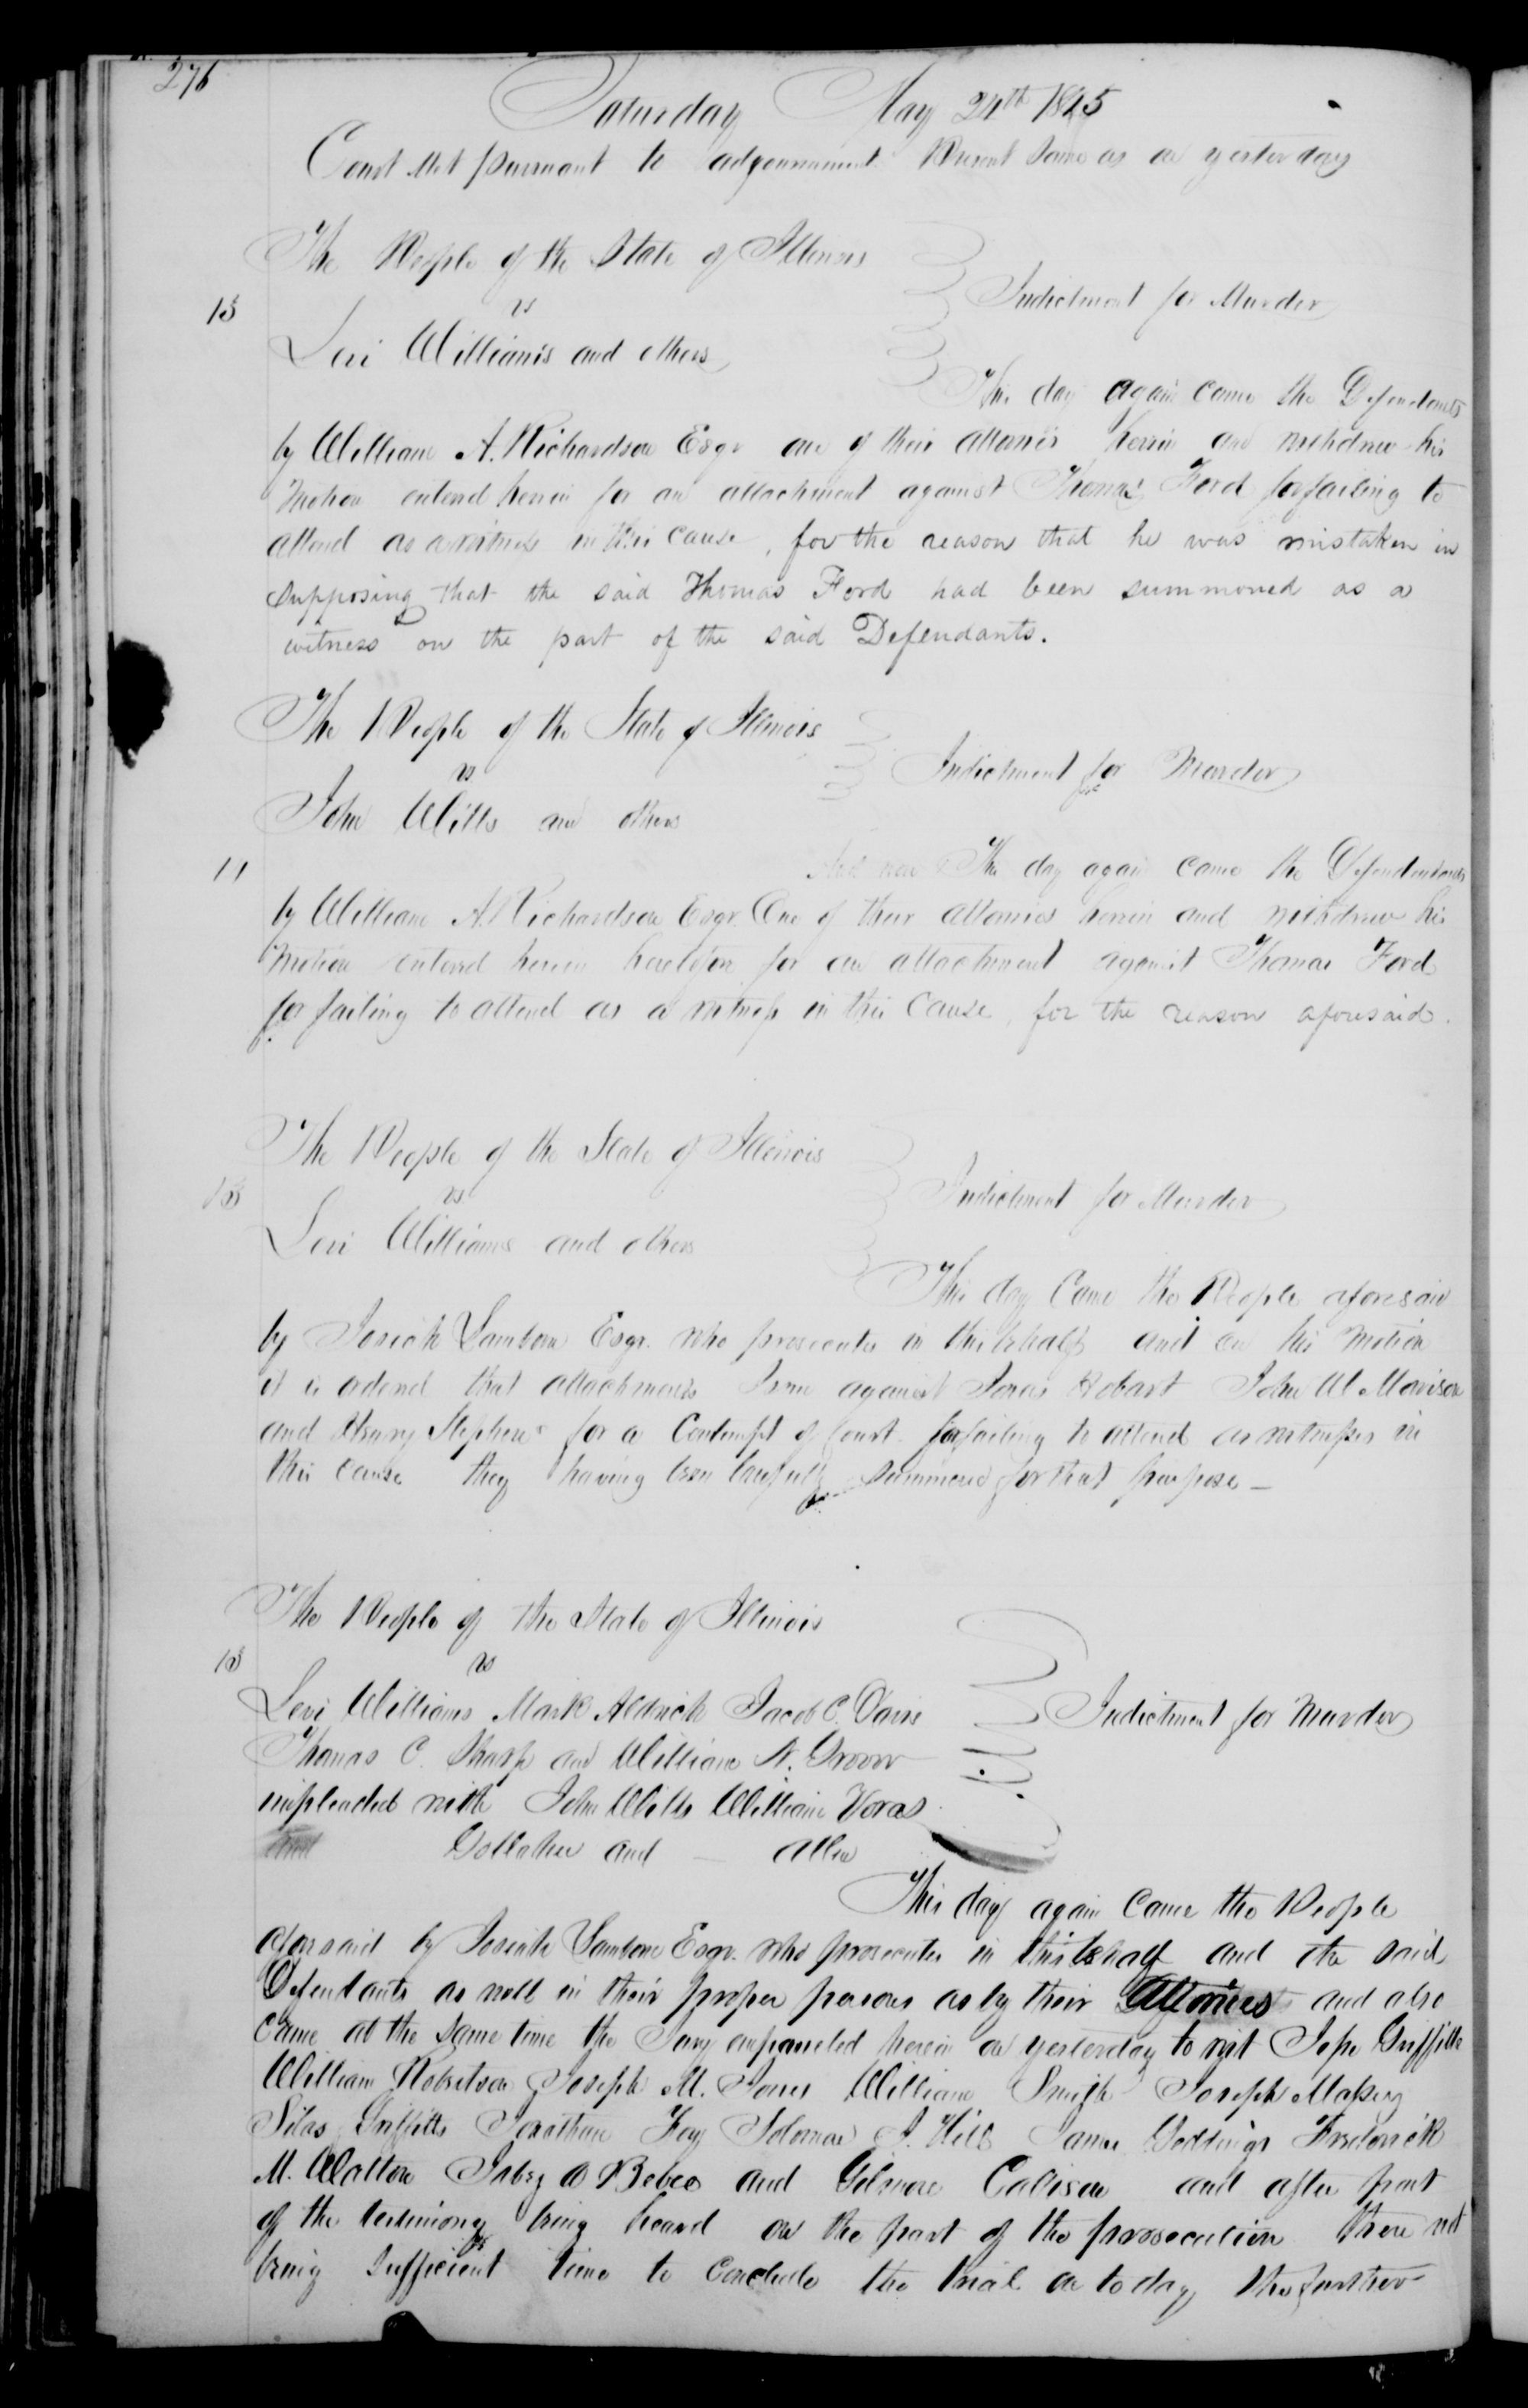 276
Saturday May 24th 1845
Court Met pursuant to adjournment Present Same as on yesterday
The People of the State of Illinois
vs
Indictment for Murder
13
Levi Williams and others
This day again came the Defendants
by William A. Richardson Esqr one of their attornies herein and withdrew his
Motion entered herein for an attachment against Thomas Ford for failing to
attend as a witness in this cause, for the reason that he was mistaken in
supposing that the said Thomas Ford had been summoned as a
witness on the part of the said Defendants.
The People of the State of Illinois
vs
Indictment for Murder
John Wills and others
11
This day again came the Defendants
by William A. Richardson Esqr One of their attornies herein and withdrew his
Motion entered herein heretofore for an attachment against Thomas Ford
for failing to attend as a witness in this Cause, for the reason aforesaid.
The People of the State of Illinois
13
vs
Indictment for Murder
Levi Williams and others
This day Came the People aforesaid
by Josiah Lamborn Esqr. who prosecutes in this behalf and on his Motion
it is orderd that attachments Issue against Jonas Hobart John W. Marison
and Henry Stephens for a Contempt of Court for failing to attend as witnesses in
this cause they having been lawfully summoned for that purpose –
The People of the State of Illinois
13
vs
Levi Williams Mark Aldrich Jacob C. Davis
Indictment for Murder
Thomas C. Sharp and William N. Grover
impleaded with John Wills William Voras
and Gallaher and — Allen
This day again Came the People
aforsaid by Josiah Lamborn Esqr. who prosecutes in this behalf and the said
Defendants as well in their proper persons as by their Attornies and also
came at the same time the Jury empaneled herein on yesterday to wit Jesse Griffitts
William Robertson Joseph M. Jones William Smith Joseph Massey
Silas Griffitts Jonathan Foy Solomon J. Hill James Geddings Frederick
M. Walton Jabez A Bebee and Gilmore Callison and after part
of the testimony being heard on the part of the prosecution there not
being Sufficient time to conclude the trial on to day, the further